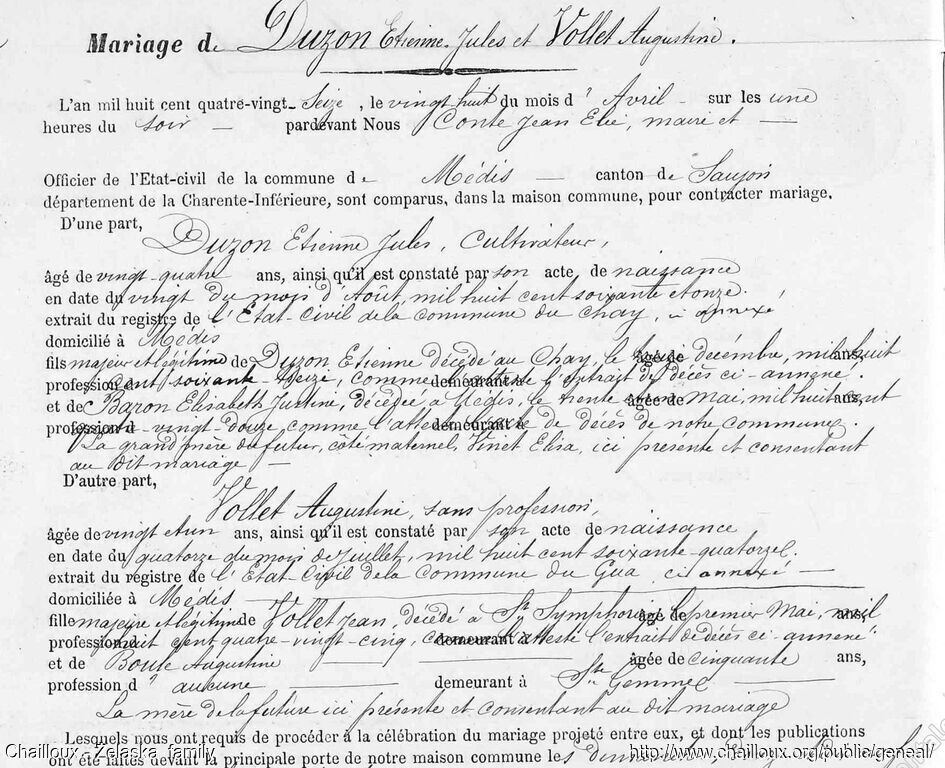 Mariage de Duzon Etienne Jules et Vollet Augustine.
L'an mil huit cent quatre-vingt-seize, le vingt huit du mois d'Avril sur les une
heures du soir pardevant Nous Conte Jean Elie, maire et
Officier de l'Etat-civil de la commune de Médis canton de Saujon
département de la Charente-Inférieure, sont comparus, dans la maison commune, pour contracter mariage,
D'une part,
Duzon Etienne Jules, Cultivateur,
âgé de vingt-quatre ans, ainsi qu'il est constaté par son acte de naissance
en date du vingt du mois d'Août, mil huit cent soixante et onze.
extrait du registre de l'Etat-Civil de la commune du Chay, ci annexé
domicilié à Médis
fils majeur et légitime de Duzon Etienne décédé au Chay, le âgé de décembre, mil huit ans,
profession d cent soixante-seize, comme demeurant à l'extrait de décès ci-annexé.
et de Baron Elisabeth Justine, décédée à Médis, le trente âgée de Mai, mil huit cent ans,
profession d quatre-vingt-douze, comme l'atteste demeurant à de décès de notre commune.
La grand'mère du futur, côté maternel, Vinet Elisa, ici présente et consentant
au dit mariage
D'autre part,
Vollet Augustine, sans profession,
âgée de vingt et un ans, ainsi qu'il est constaté par son acte de naissance
en date du quatorze du mois de Juillet, mil huit cent soixante-quatorze.
extrait du registre de l'Etat-Civil de la Commune du Gua, ci annexé
domiciliée à Médis
fille majeure et légitime de Vollet Jean, décédé à St Symphorien âgé de le premier Mai, mil ans,
profession d huit cent quatre-vingt-cinq, comme demeurant à l'atteste l'extrait de décès ci-annexé.
et de Boule Augustine âgée de cinquante ans,
profession d'aucune demeurant à Ste Gemme
La mère de la future ici présente et consentant au dit mariage
Lesquels nous ont requis de procéder à la célébration du mariage projeté entre eux, et dont les publications
ont été faites devant la principale porte de notre maison commune les dimanches
Chailloux - Zelaska family
http://www.chailloux.org/public/geneal/